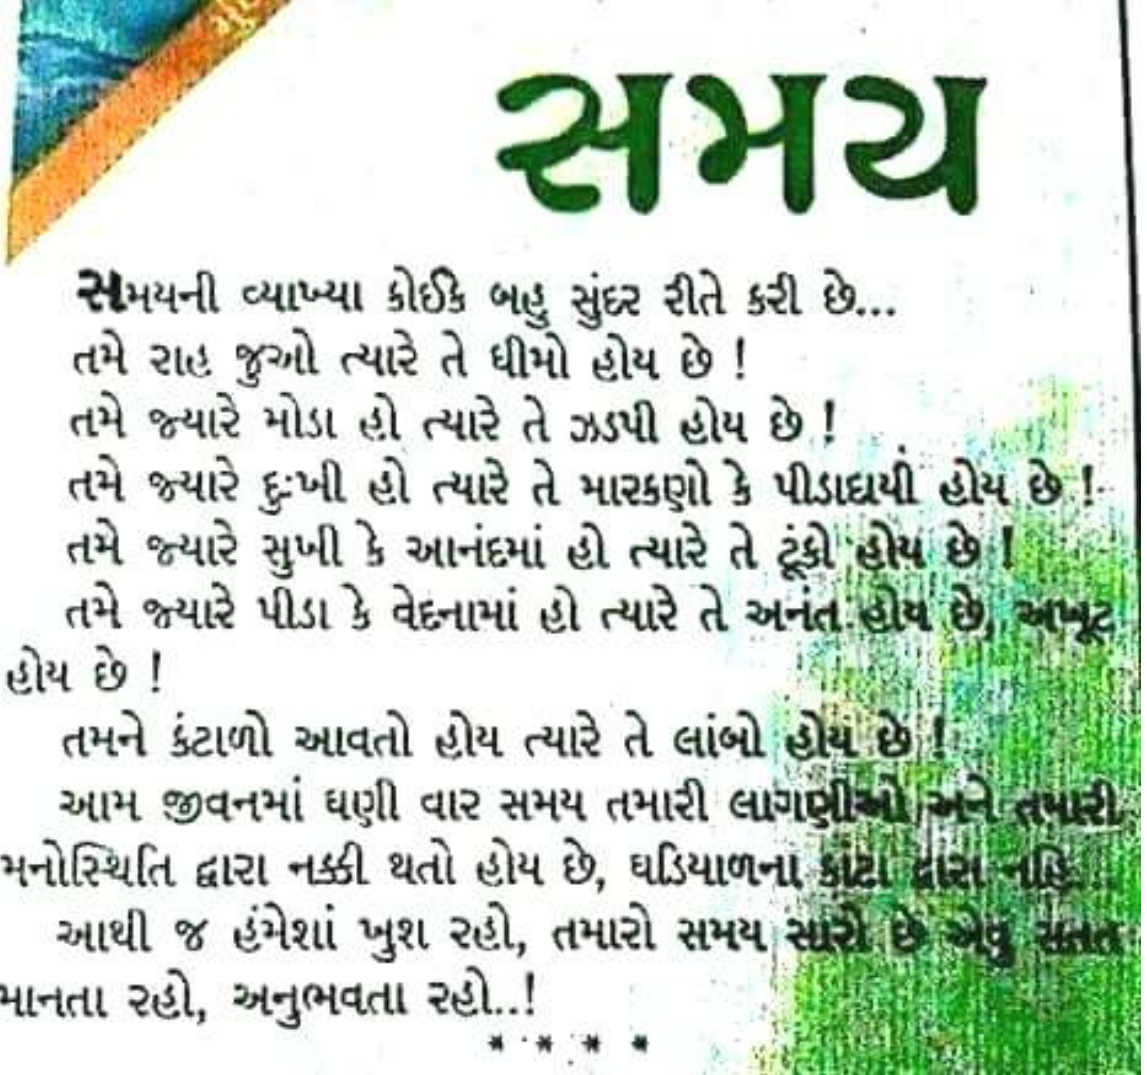 સમય
સમયની વ્યાખ્યા કોઈકે બહુ સુંદર રીતે કરી છે...
તમે રાહ જુઓ ત્યારે તે ધીમો હોય છે !
તમે જ્યારે મોડા હો ત્યારે તે ઝડપી હોય છે !
તમે જ્યારે દુઃખી હો ત્યારે તે મારકણો કે પીડાદાયી હોય છે !
તમે જ્યારે સુખી કે આનંદમાં હો ત્યારે તે ટૂંકો હોય છે !
તમે જ્યારે પીડા કે વેદનામાં હો ત્યારે તે અનંત હોય છે, અખૂટ
હોય છે !
તમને કંટાળો આવતો હોય ત્યારે તે લાંબો હોય છે !
આમ જીવનમાં ઘણી વાર સમય તમારી લાગણીઓ અને તમારી
મનોસ્થિતિ દ્વારા નક્કી થતો હોય છે, ઘડિયાળના કાંટા દ્વારા નહિ...
આથી જ હંમેશાં ખુશ રહો, તમારો સમય સારો છે એવું સતત
માનતા રહો, અનુભવતા રહો..!
* * * *